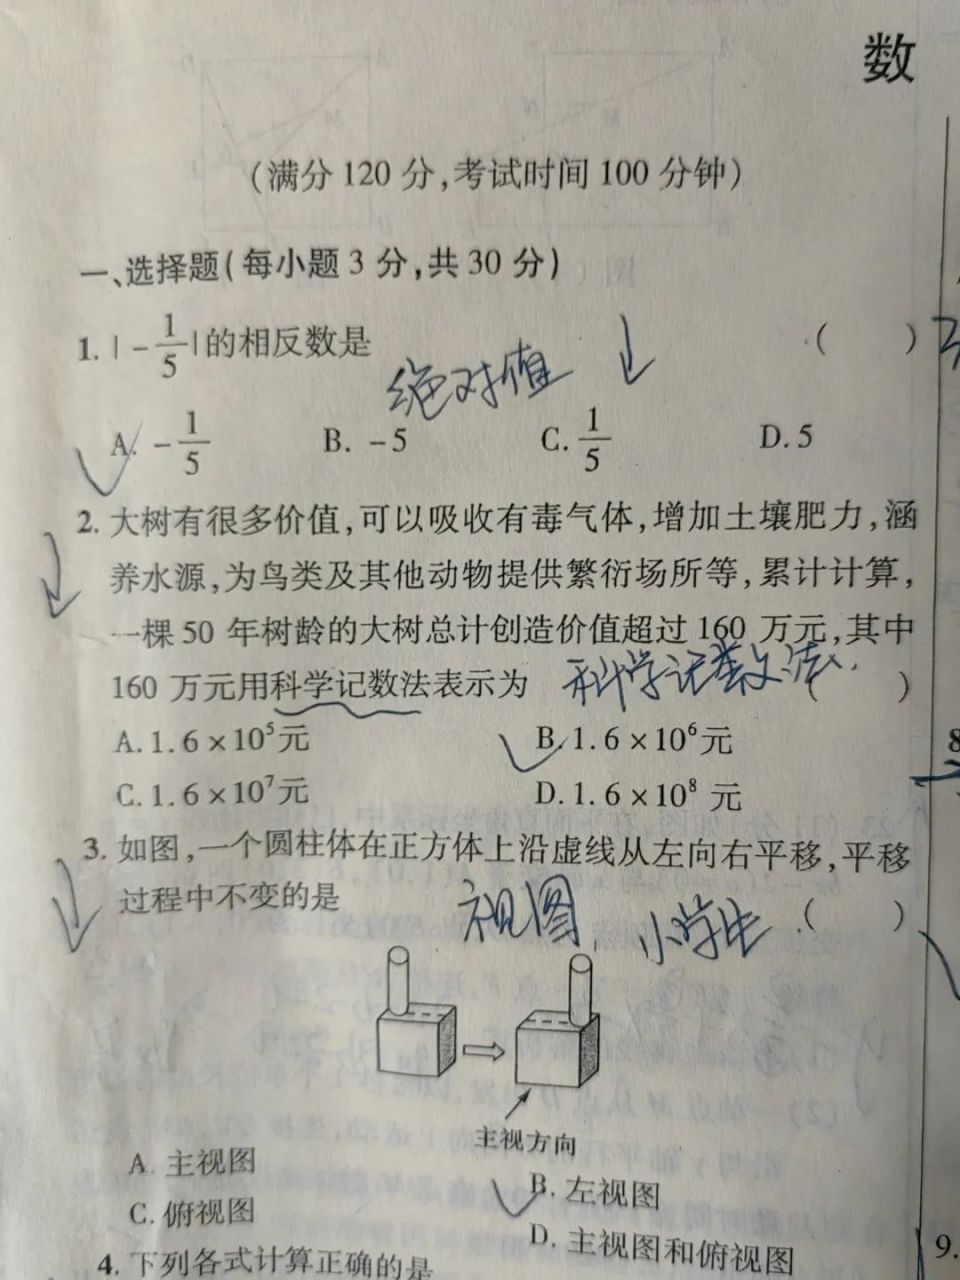 数
(满分 120 分,考试时间 100 分钟)
一、选择题(每小题 3 分,共 30 分)
1. |-1/5|的相反数是 ( )
绝对值
A. -1/5 B. -5 C. 1/5 D. 5
2. 大树有很多价值,可以吸收有毒气体,增加土壤肥力,涵
养水源,为鸟类及其他动物提供繁衍场所等,累计计算,
一棵 50 年树龄的大树总计创造价值超过 160 万元,其中
160 万元用科学记数法表示为 ( )
科学记数法
A. 1.6×10⁵元 B. 1.6×10⁶元
C. 1.6×10⁷元 D. 1.6×10⁸ 元
3. 如图,一个圆柱体在正方体上沿虚线从左向右平移,平移
过程中不变的是 ( )
视图 小学生
主视方向
A 主视图 B. 左视图
C. 俯视图 D. 主视图和俯视图
4. 下列各式计算正确的是
8
9.